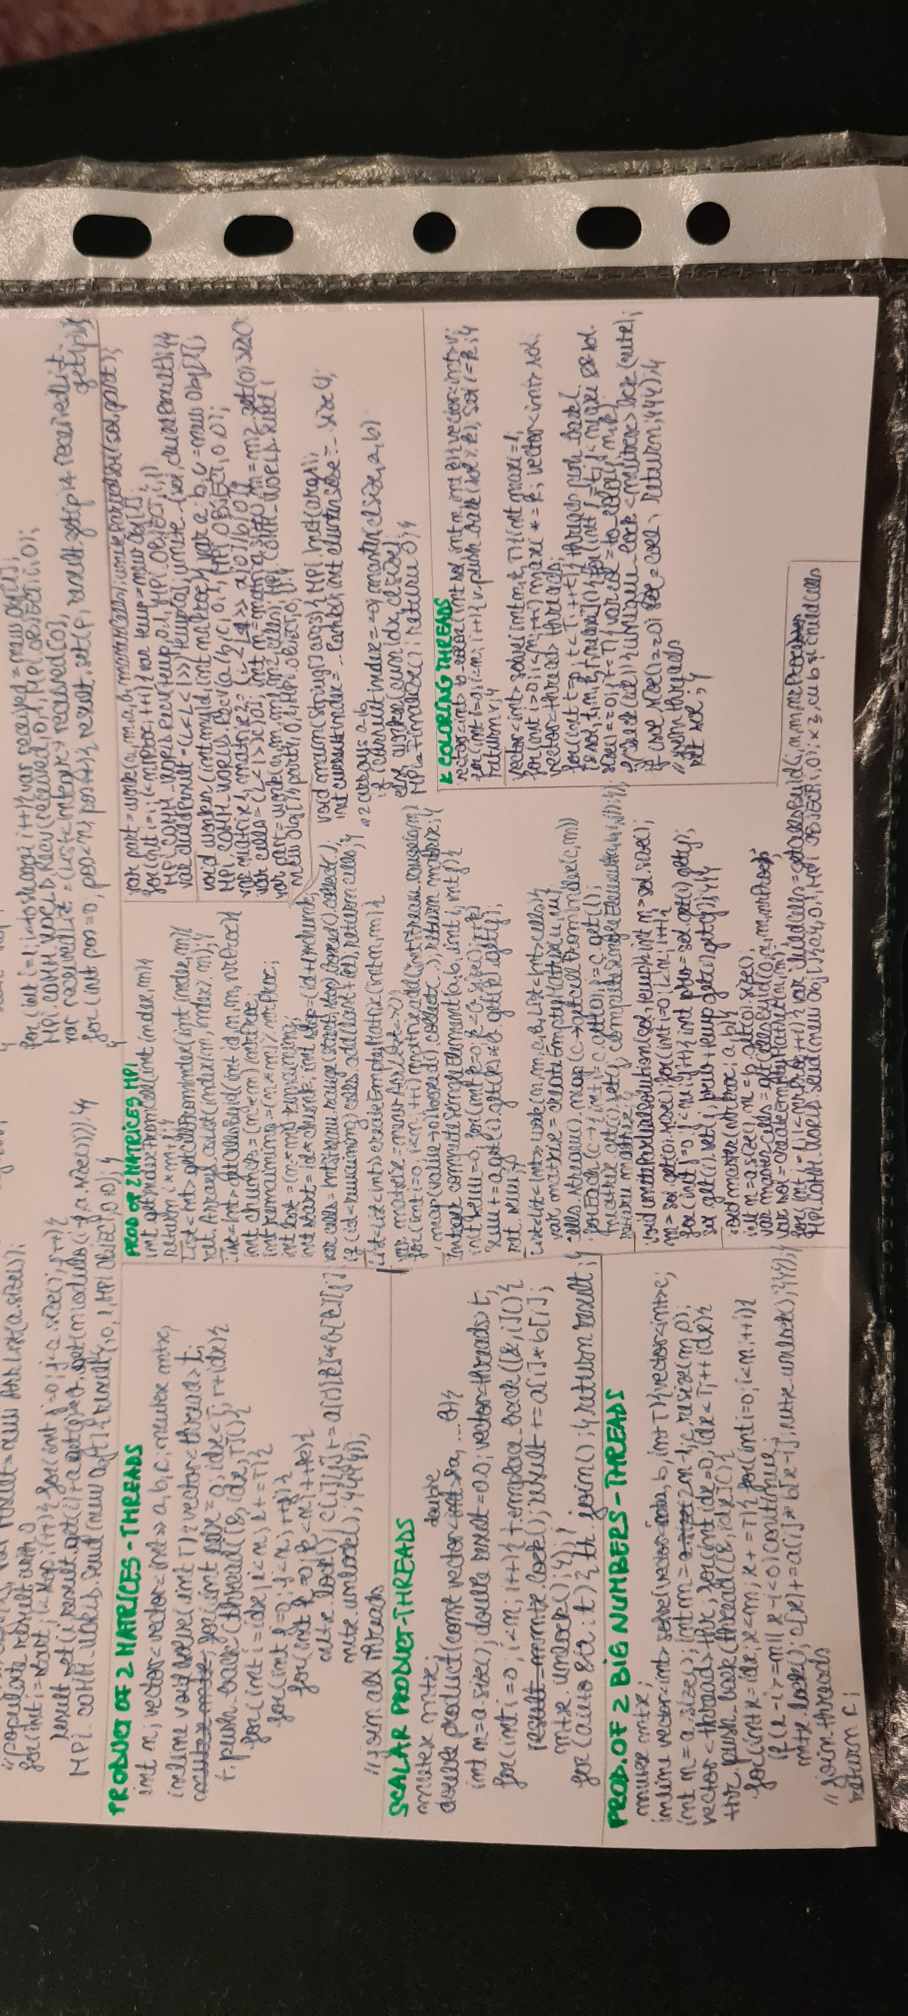 var result = new ArrList(a.size());
//populate result with 0
for(int i=start; i<stop; i++){ for(int j=0; j<a.size(); j++){
result.set(i, result.get(i)+a.get(j)*b.get(modulo(i-j, a.size()))}}
MPI.COMM_WORLD.Send(new Obj[]{result},0,1,MPI.OBJECT,0,0); }
for(int i=1; i< i++){ var received = new Obj[1];
MPI.COMM_WORLD.Recv(received,0,1,MPI.OBJECT,i,0);
var receivedList = (List<Integer>) received[0],
for(int pos=0, pos<n; pos++){ result.set(p, result.get(p)+ receivedList.
get(p)}
}
PRODUCT OF 2 MATRICES - THREADS
int n; vector<vector<int>> a,b,c; mutex mtx,
inline void solve(int T){ vector<thread> t;
mutex mtx; for(int idx=0, idx<T; ++idx){
t.push_back(thread([&,idx,T](){
for(int i=idx; i<n; i+=T){
for(int j=0; j<n; ++j){
for(int k=0; k<n; ++k){
mtx.lock(); c[i][j]+=a[i][k]*b[k][j]
mtx.unlock(); }}}});
//join all threads
SCALAR PRODUCT-THREADS
mutex mtx;
double
double product(const vector<int>&a, ... b){
int n=a.size(); double result=0.0; vector<threads> t,
for(int i=0; i<n; i++){ t.emplace_back([&,i](){
result mtx.lock(); result += a[i]*b[i];
mtx.unlock(); });}
for(auto &tr: t){ th.join(); } return result; }
PROD. OF 2 BIG NUMBERS - THREADS
mutex mtx;
inline vector<int> solve(vector<int>a, b, int T){vector<int>c;
int n=a.size(); int m=a.size 2n-1; c.resize(m,0);
vector<thread> thr, for(int idx=0; idx<T; ++idx){
thr.push_back(thread([&,idx](){
for(int x=idx; x<m; x+=T){ for(int i=0; i<n; ++i){
if(x-i>=n || x-i<0) continue;
mtx.lock(); c[x]+=a[i]*b[x-i]; mtx.unlock();}}});}
//join threads
return c;
PROD OF 2 MATRICES MPI
int getIndexFromCell(int index,m){
return i*m+j;}
List<Int> getCellFromIndex(int index,m){
ret. Arrays.asList(index/m, index%m);}
List<Int> getCellsById(int id,n,m,nrProc){
int chunck=(n*m)/nrProc;
int remaining=(n*m)%nrProc;
int last=(n*m)-remaining;
int start=id*chunk; int stop=(id+1)*chunk,
var cells=IntStream.range(start,stop).boxed().collect();
if(id<remaining) cells.add(last+id), return cells;}
List<List<Int>> createEmptyMatrix(int n,m){
var matrix=new ArrList<>();
for(int i=0, i<n; ++i) matrix.add(IntStream.range(0,m)
.map(value->0).boxed().collect(..); return matrix;}
Integer computeSingleElement(a,b, int i, int j){
int sum=0; for(int k=0; k<a.size(); ++k)
sum+=a.get(i).get(k)*b.get(k).get(j);
ret. sum;}
List<List<Int>> work(n,m,a,b,List<Int>cells){
var matrix=createEmptyMatrix(n,m)
cells.stream().map(c->getCellFromIndex(c,m))
.forEach(c->{int i=c.get(0), j=c.get(1);
matrix.get(i).set(j, computeSingleElement(a,b,i,j));});
return matrix;}
void unitePartialSolution(sol,temp){int n=sol.size();
m=sol.get(0).size(); for(int i=0; i<n; i++){
for(int j=0; j<m; j++){ int prev=sol.get(i).get(j);
sol.get(i).set(j, prev+temp.get(i).get(j));}}}
void master(nrProc, a,b){
int n=a.size(), m=b.get(0).size();
var masterCells=getCellsById(0,n,m,nrProc);
var sol=createEmptyMatrix(n,m);
for(int i=1; i<nrProc; ++i){ var childCells=getCellsById(i,n,m,nrProc
MPI.COMM_WORLD.Send(new Obj[]{a},0,1,MPI.OBJECT,i,0); x3, cu b și childCells
var part=work(n,m,a,b,masterCells); unitePartialSol(sol,part);
for(int i=1; i<nrProc; i++){ var temp=new Obj[1];
MPI.COMM_WORLD.Recv(temp,0,1,MPI.OBJECT,i,1)
var childResult=(L<L<I>>) temp[0]; unite...(sol,childResult);}}
void worker(int myId, int nrProc){ var a,b,c=new Obj[1],
MPI.COMM_WORLD.Recv(a/b/c,0,1,MPI.OBJECT,0,0);
var matrix1, matrix2=(L<L<I>>) a[0]/b[0];
var cells=(L<I>)c[0]; int n=matrix1.size(), m=m2.get(0).size()
var part=work(n,m,m1,m2,cells); MPI.COMM_WORLD.Send(
new Obj[]{part},0,1,MPI.OBJECT,0,1);}
void main(String[] args){ MPI.Init(args);
int currentIndex=...Rank(); int clusterSize=...size();
2 arrays a,b
if(currentIndex==0) master(clSize,a,b)
else worker(currIdx,clSize)
MPI.Finalize(); return 0;}
K COLORING THREADS
vector<int> to_color(int sol, int n, int k){vector<int>v;
for(int i=0; i<n; i++){v.push_back(sol%k), sol/=k;}
return v;}
vector<int> solve(int n,k,T){int maxi=1;
for(int i=0; i<n; ++i) maxi*=k; vector<int> sol.
vector<thread> threads;
for(int t=0; t<T; ++t){ threads.push_back(
[&sol,t,n,k,T,maxi](){for(int i=t; i<maxi && sol.
size()==0; i+=T){ var col=to_color(i,n,k)
if(check(col)){unique_lock<mutex> lck(mtx);
if(sol.size()==0) sol=col; return;}}});}
//join threads
ret sol;}